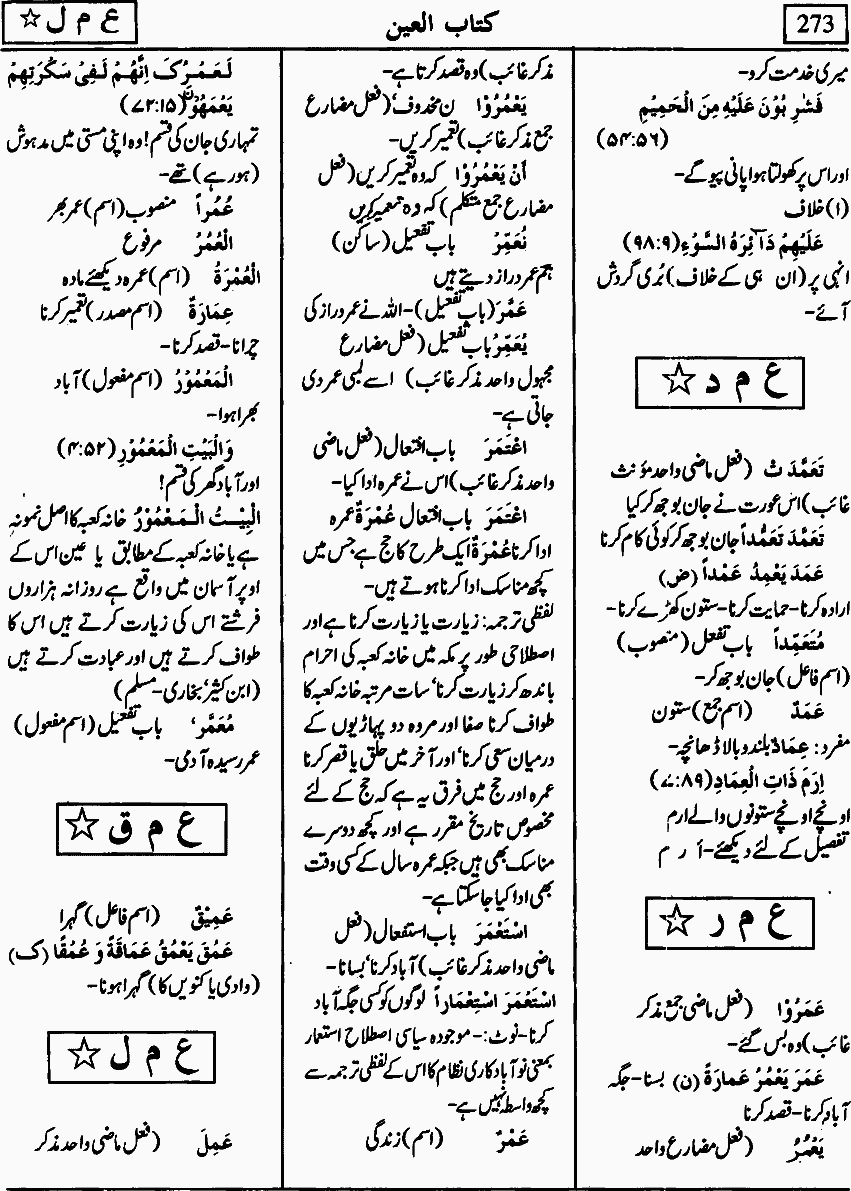 273
کتاب العین
ع م ل ☆
میری خدمت کرو-
فَشٰرِ بُوْنَ عَلَیْہِ مِنَ الْحَمِیْمِ
(۵۴:۵۶)
اور اس پر کھولتا ہوا پانی پیو گے-
(۱) خلاف
عَلَیْہِمْ دَآئِرَۃُ السَّوْءِ (۹۸:۹)
انہی پر (ان ہی کے خلاف) بُری گردش
آئے-
ع م د ☆
تَعَمَّدَ تْ (فعل ماضی واحد مؤنث
غائب) اس عورت نے جان بوجھ کر کیا
تَعَمَّدَ تَعَمُّداً جان بوجھ کر کوئی کام کرنا
عَمَدَ یَعْمِدُ عَمْداً (ض)
ارادہ کرنا- حمایت کرنا- ستون کھڑے کرنا-
مُتَعَمِّداً باب تفعل (منصوب)
(اسم فاعل) جان بوجھ کر-
عَمَدٌ (اسم جمع) ستون
مفرد: عِمَادٌ بلند و بالا ڈھانچہ-
اِرَمَ ذَاتِ الْعِمَادِ (۷:۸۹)
اونچے اونچے ستونوں والے ارم
تفصیل کے لئے دیکھئے- أ ر م
ع م ر ☆
عَمَرُوْا (فعل ماضی جمع مذکر
غائب) وہ بس گئے-
عَمَرَ یَعْمُرُ عَمارَۃً (ن) بسنا- جگہ
آباد کرنا- قصد کرنا
یَعْمُرُ (فعل مضارع واحد
مذکر غائب) وہ قصد کرتا ہے-
یَعْمُرُوْا ن محذوف' (فعل مضارع
جمع مذکر غائب) تعمیر کریں-
أَنْ یَعْمُرُوْا کہ وہ تعمیر کریں (فعل
مضارع جمع متکلم) کہ وہ تعمیر کریں
نُعَمِّرْ باب تفعیل (ساکن)
ہم عمر دراز دیتے ہیں
عَمَّرَ (باب تفعیل)- اللہ نے عمر دراز کی
یُعَمَّرُ باب تفعیل (فعل مضارع
مجہول واحد مذکر غائب) اسے لمبی عمر دی
جاتی ہے-
اعْتَمَرَ باب افتعال (فعل ماضی
واحد مذکر غائب) اس نے عمرہ ادا کیا-
اعْتَمَرَ باب افتعال عُمْرَۃٌ عمرہ
ادا کرنا عُمْرَۃٌ ایک طرح کا حج ہے جس میں
کچھ مناسک ادا کرنا ہوتے ہیں-
لفظی ترجمہ: زیارت یا زیارت کرنا ہے اور
اصطلاحی طور پر مکہ میں خانہ کعبہ کی احرام
باندھ کر زیارت کرنا' سات مرتبہ خانہ کعبہ کا
طواف کرنا صفا اور مروہ دو پہاڑیوں کے
درمیان سعی کرنا' اور آخر میں حلق یا قصر کرنا
عمرہ اور حج میں فرق یہ ہے کہ حج کے لئے
مخصوص تاریخ مقرر ہے اور کچھ دوسرے
مناسک بھی ہیں جبکہ عمرہ سال کے کسی وقت
بھی ادا کیا جا سکتا ہے-
اسْتَعْمَرَ باب استفعال (فعل
ماضی واحد مذکر غائب) آباد کرنا' بسانا-
اسْتَعْمَرَ اسْتِعْمَاراً لوگوں کو کسی جگہ آباد
کرنا- نوٹ:- موجودہ سیاسی اصطلاح استعمار
بمعنی نو آباد کاری نظام کا اس کے لفظی ترجمہ سے
کچھ واسطہ نہیں ہے-
عَمْرٌ (اسم) زندگی
لَعَمْرُکَ اِنَّہُمْ لَفِیْ سَکْرَتِہِمْ
یَعْمَہُوْنَ (۷۲:۱۵)
تمہاری جان کی قسم! وہ اپنی مستی میں مدہوش
(ہو رہے) تھے-
عُمُراً منصوب (اسم) عمر بھر
الْعُمُرُ مرفوع
الْعُمْرَۃُ (اسم) عمرہ دیکھئے مادہ
عِمَارَۃٌ (اسم مصدر) تعمیر کرنا
چرانا- قصد کرنا-
الْمَعْمُوْرُ (اسم مفعول) آباد
بھرا ہوا-
وَالْبَیْتِ الْمَعْمُوْرِ (۴:۵۲)
اور آباد گھر کی قسم!
الْبَیْتُ الْمَعْمُوْرُ خانہ کعبہ کا اصل نمونہ
ہے یا خانہ کعبہ کے مطابق یا عین اس کے
اوپر آسمان میں واقع ہے روزانہ ہزاروں
فرشتے اس کی زیارت کرتے ہیں اس کا
طواف کرتے ہیں اور عبادت کرتے ہیں
(ابن کثیر' بخاری- مسلم)
مُعَمَّر' باب تفعیل (اسم مفعول)
عمر رسیدہ آدمی-
ع م ق ☆
عَمِیْقٌ (اسم فاعل) گہرا
عَمُقَ یَعْمُقُ عَمَاقَۃً وَ عُمْقًا (ک)
(وادی یا کنویں کا) گہرا ہونا-
ع م ل ☆
عَمِلَ (فعل ماضی واحد مذکر